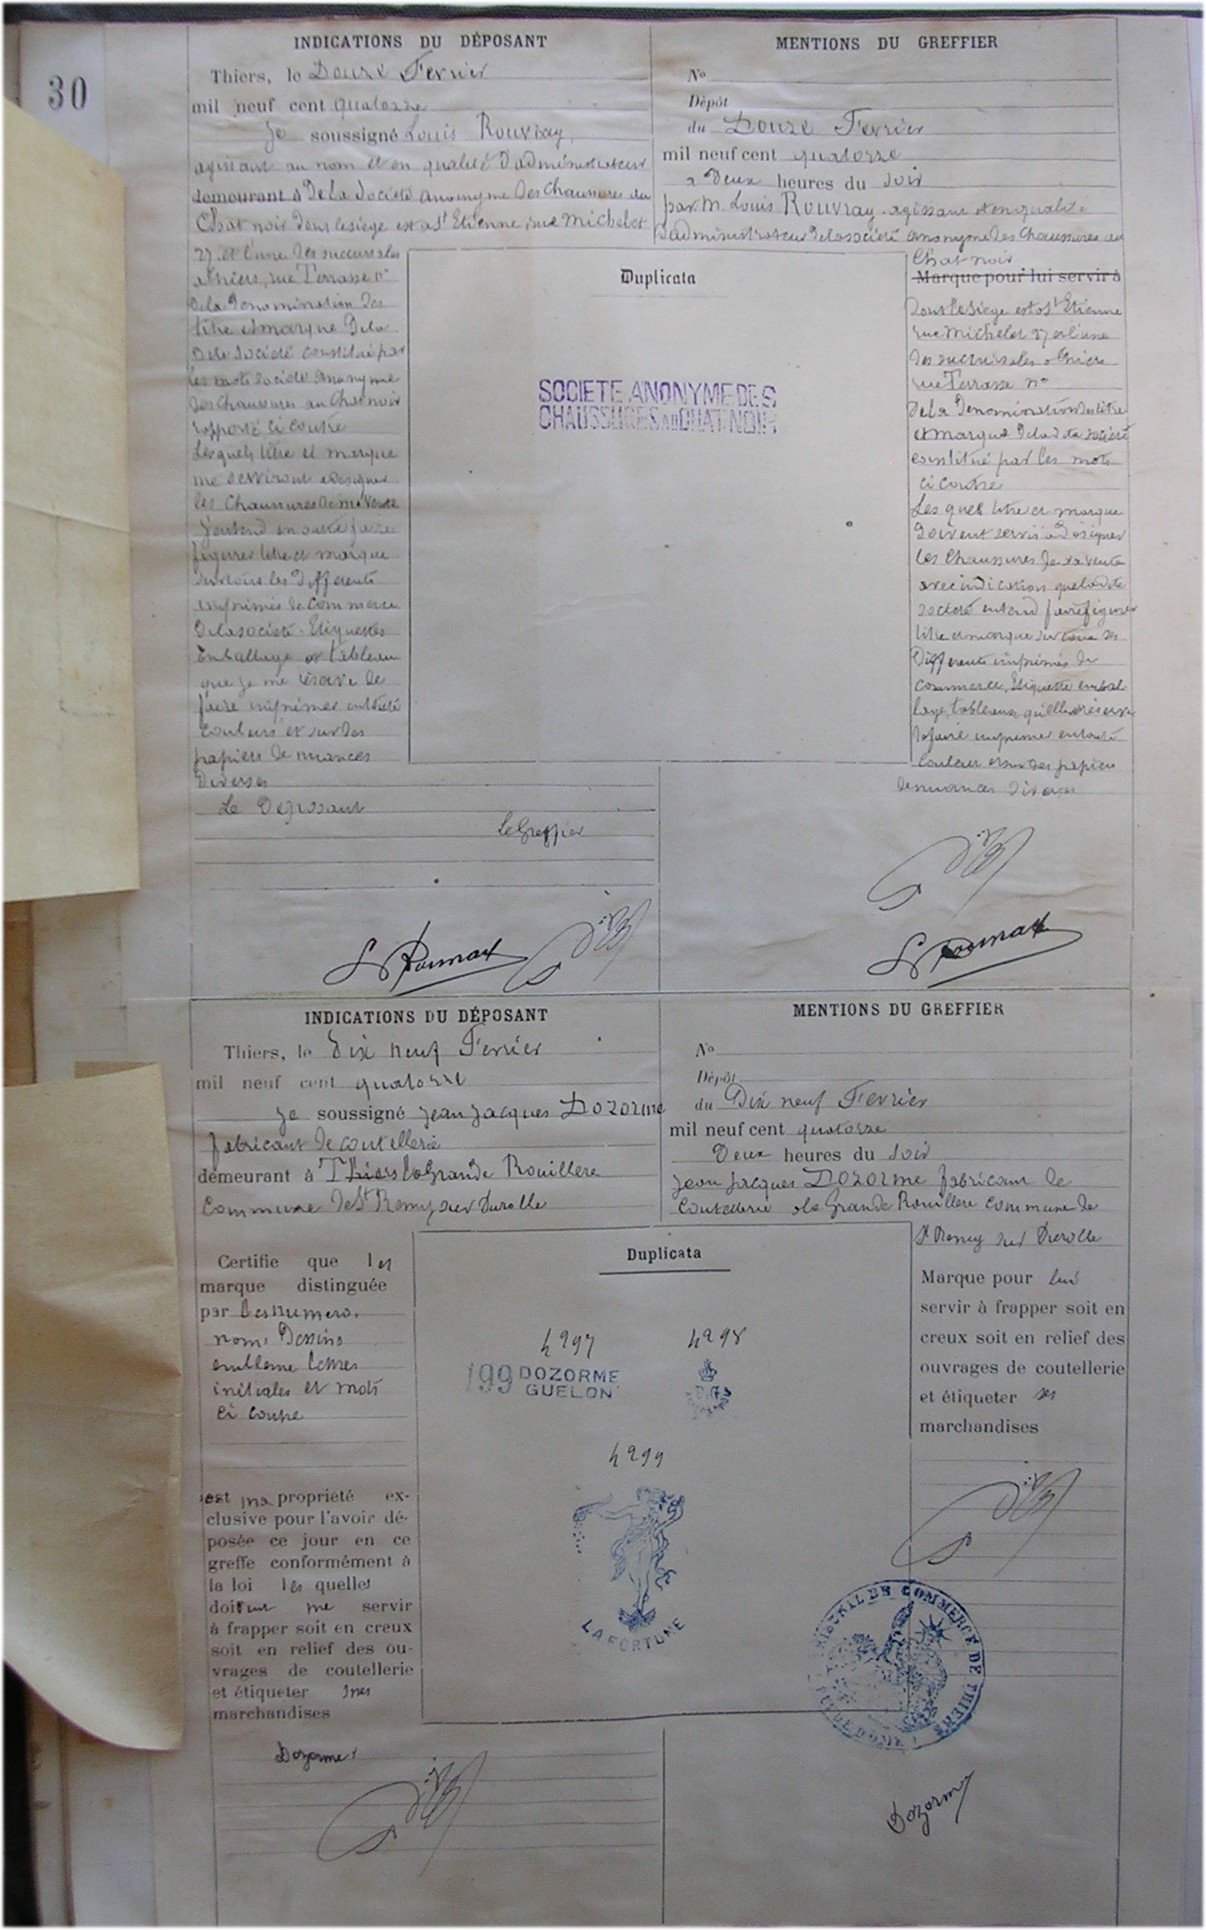 30
INDICATIONS DU DÉPOSANT
Thiers, le Douze Fevrier
mil neuf cent quatorze
Je soussigné Louis Rouvray
agissant au nom et en qualité d'administrateur
demourant à De La Société anonyme des Chaussures du
Chat noir dont le siège est a St Etienne, rue Michelet
27 et l'une des succursales
a Thiers, rue Terrasse n°
de la Denomination des
titre et marque De la
Dite Société constitué par
les mots Société Anonyme
des Chaussures au Chat noir
rapporté ci contre
Lesquels titre et marque
me serviront a designer
les Chaussures de ma Vente
J'entend en outre faire
figurer titre et marque
sur tous les Differents
imprimés de commerce
de la société. Etiquettes
Emballage et tableau
que je me réserve de
faire imprimer en toute
couleurs et sur des
papiers de nuances
Diverses
Le Deposant
Le Greffier
MENTIONS DU GREFFIER
No
Dépôt
du Douze Fevrier
mil neuf cent quatorze
a Deux heures du soir
par M. Louis Rouvray agissant et en qualité
d'administrateur de la société anonyme des Chaussures au
Chat noir
Marque pour lui servir à
Dont le siege est a St Etienne
rue Michelet 27 et l'une
des succursales a Thiers
rue Terrasse n°
De la Denomination des titre
et marque De la dite société
constitué par les mots
ci contre
Les quels titre et marque
Doivent servir a Désigner
les Chaussures de sa vente
avec indication que la dite
société entend faire figurer
titre et marque sur tous ses
Differents imprimés de
commerce, Etiquette embal
lage, tableaux qu'elle se réserve
de faire imprimer en toute
couleur et sur des papiers
de nuances Diverses
Duplicata
SOCIETE ANONYME DES
CHAUSSURES AU CHAT NOIR
INDICATIONS DU DÉPOSANT
Thiers, le Dix neuf Fevrier
mil neuf cent quatorze
Je soussigné Jean Jacques Dozorme
fabricant de coutellerie
demeurant à Thiers la Grande Rouillere
Commune de St Remy sur Durolle
Certifie que les
marque distinguée
par les numero,
nom, Dessins
embleme lettres
initiales et mots
ci contre
est ma propriété ex-
clusive pour l'avoir dé-
posée ce jour en ce
greffe conformément à
la loi les quelles
doivent me servir
à frapper soit en creux
soit en relief des ou-
vrages de coutellerie
et étiqueter mes
marchandises
Dozorme
MENTIONS DU GREFFIER
No
Dépôt
du Dix neuf Fevrier
mil neuf cent quatorze
Deux heures du soir
Jean Jacques Dozorme fabricant de
Coutellerie a la Grande Rouillere commune de
St Remy sur Durolle
Marque pour lui
servir à frapper soit en
creux soit en relief des
ouvrages de coutellerie
et étiqueter ses
marchandises
Duplicata
4297 4298
199 DOZORME
GUELON
4299
LA FORTUNE
TRIBUNAL DE COMMERCE DE THIERS
PUY DE DOME
Dozorme